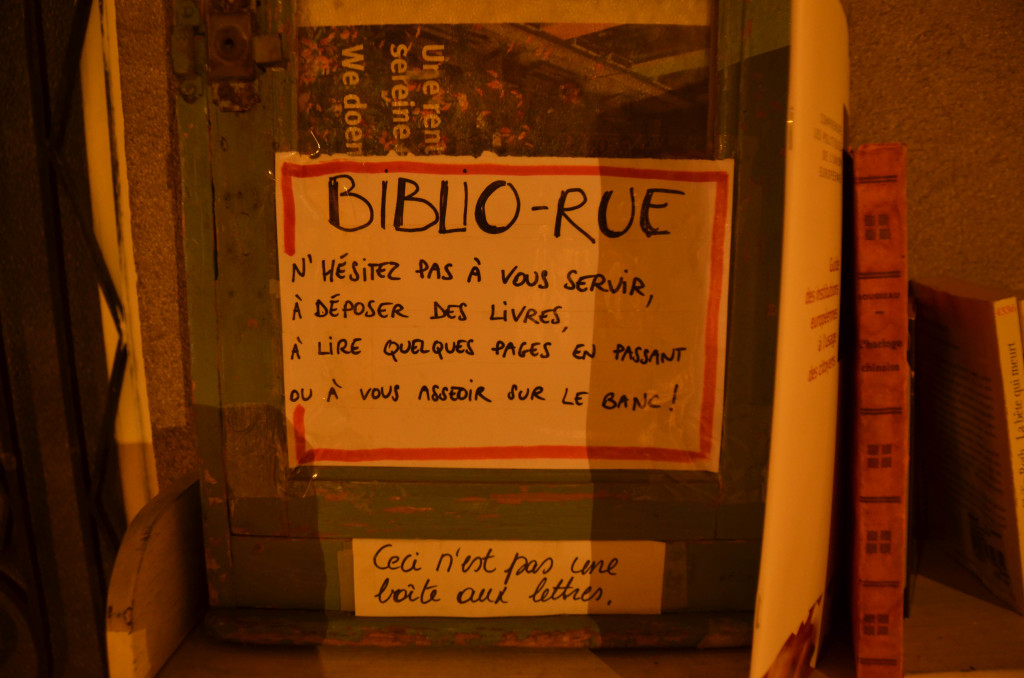 Une rent
sereine
We doen
BIBLIO-RUE
N'HÉSITEZ PAS À VOUS SERVIR,
À DÉPOSER DES LIVRES,
À LIRE QUELQUES PAGES EN PASSANT
OU À VOUS ASSEOIR SUR LE BANC !
Ceci n'est pas une
boîte aux lettres.
Guide
des institutions
européennes
à l'usage
des citoyens
L'horloge
chinoise
Roth La bête qui meurt